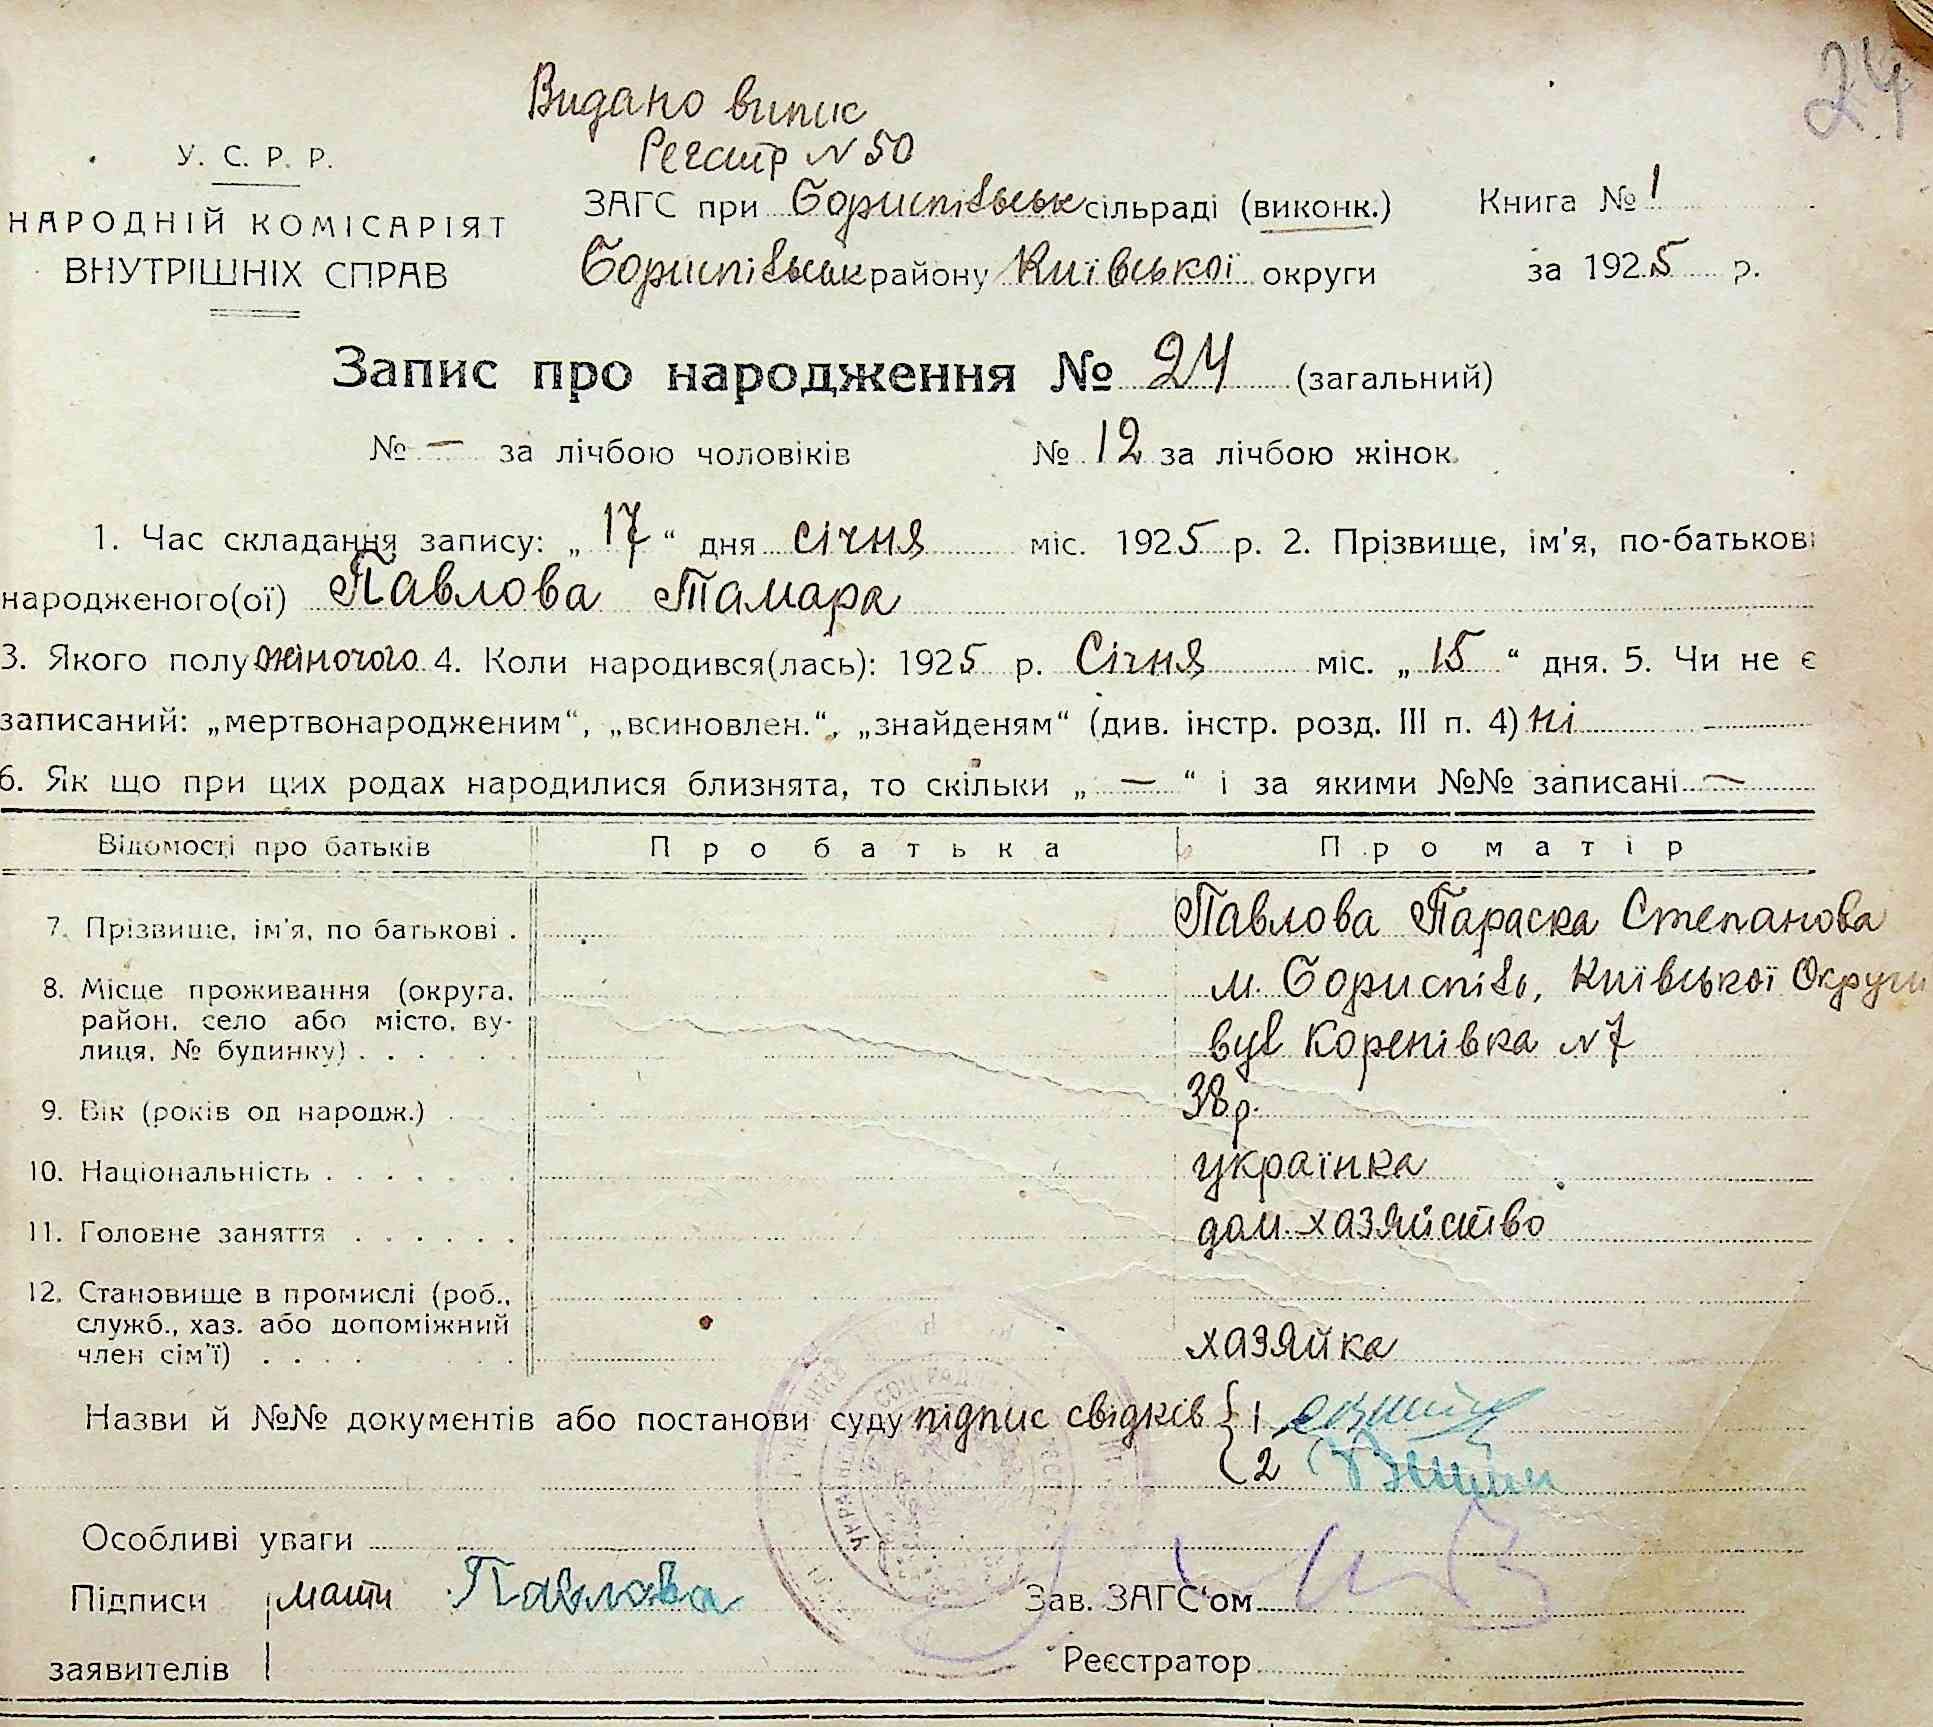 24
Видано випис
Реестр N 50
У. С. Р. Р.
НАРОДНІЙ КОМІСАРІЯТ
ВНУТРІШНІХ СПРАВ
ЗАГС при Бориспільськ сільраді (виконк.) Книга № 1
Бориспільськ району Київської округи за 1925 р.
Запис про народження № 24 (загальний)
№ — за лічбою чоловіків № 12 за лічбою жінок
1. Час складання запису: „ 17 “ дня січня міс. 1925 р. 2. Прізвище, ім'я, по-батькові
народженого(ої) Павлова Тамара
3. Якого полу жіночого 4. Коли народився(лась): 1925 р. Січня міс. „ 15 “ дня. 5. Чи не є
записаний: „мертвонародженим“, „всиновлен.“, „знайденям“ (див. інстр. розд. III п. 4) ні
6. Як що при цих родах народилися близнята, то скільки „ — “ і за якими №№ записані —
Відомості про батьків Про батька Про матір
7. Прізвище, ім'я, по батькові . Павлова Параска Степанова
8. Місце проживання (округа, м. Бориспіль, Київської Округи
район, село або місто, ву-
лиця, № будинку) . . . . . . вул Коренівка N 7
9. Вік (років од народж.) . 38 р.
10. Національність . . . . . . . українка
11. Головне заняття . . . . . . дом. хазяйство
12. Становище в промислі (роб.,
служб., хаз. або допоміжний
член сім'ї) . . . . . . . хазяйка
Назви й №№ документів або постанови суду підпис свідків { 1
2
Особливі уваги
Підписи мати Павлова Зав. ЗАГС'ом
заявителів Реєстратор